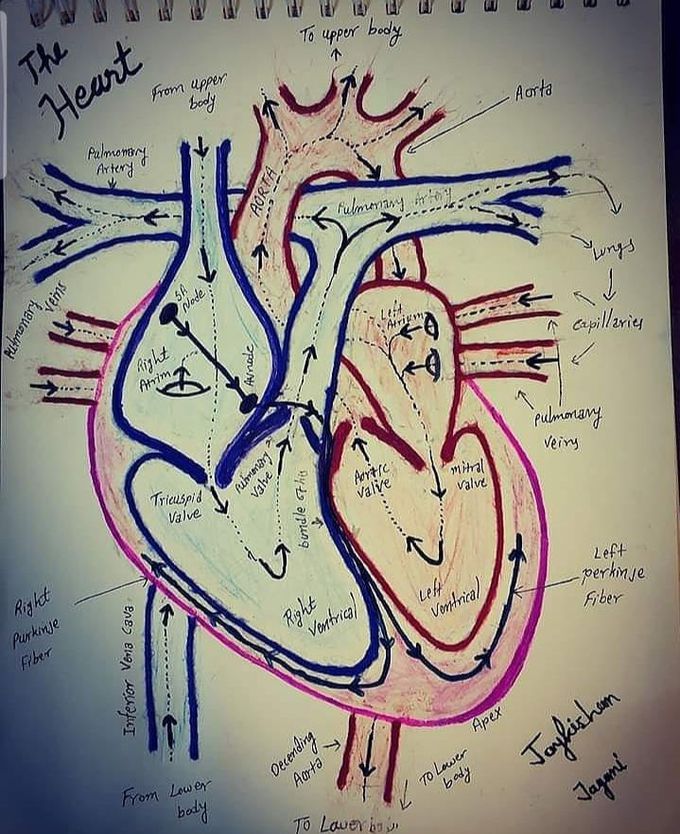 The
Heart
To upper body
From upper
body
Aorta
Pulmonary
Artery
AORTA
Pulmonary Artery
Lungs
SA
Node
Pulmonary Veins
Left
Atrium
capillaries
Right
Atrim
AVnode
pulmonary
veins
Pulmonary
Valve
Aortic
Valve
mitral
valve
Tricuspid
Valve
bundle of his
Left
perkinje
Fiber
Left
Ventrical
Right
Ventrical
Right
purkinje
Fiber
Inferior Vena Cava
Apex
Decending
Aorta
To Lower
body
From Lower
body
To Lower body
Jaykishan
Jagani